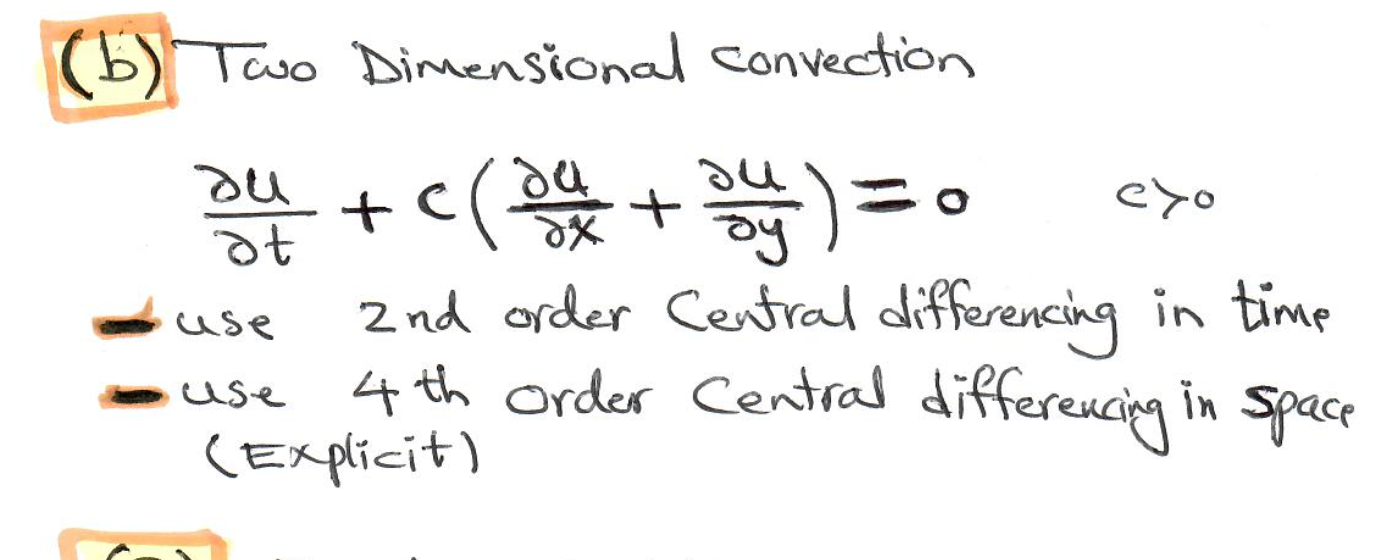 (b) Two Dimensional Convection
∂u/∂t + c(∂u/∂x + ∂u/∂y) = 0 c>0
- use 2nd order Central differencing in time
- use 4th order Central differencing in space
(Explicit)